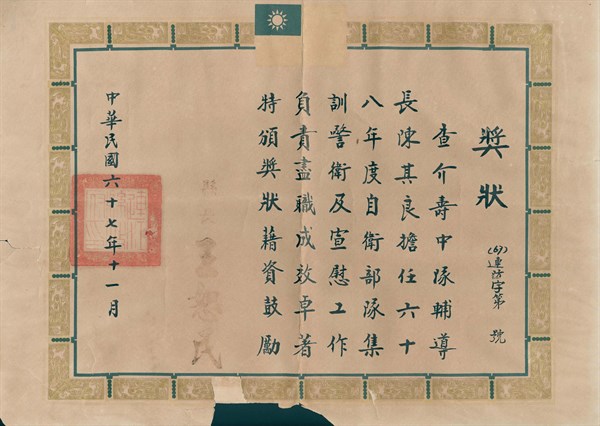 獎狀
(67)連防字第 號
查介壽中隊輔導
長陳其良擔任六十
八年度自衛部隊集
訓警衛及宣慰工作
負責盡職成效卓著
特頒獎狀藉資鼓勵
中華民國六十七年十一月